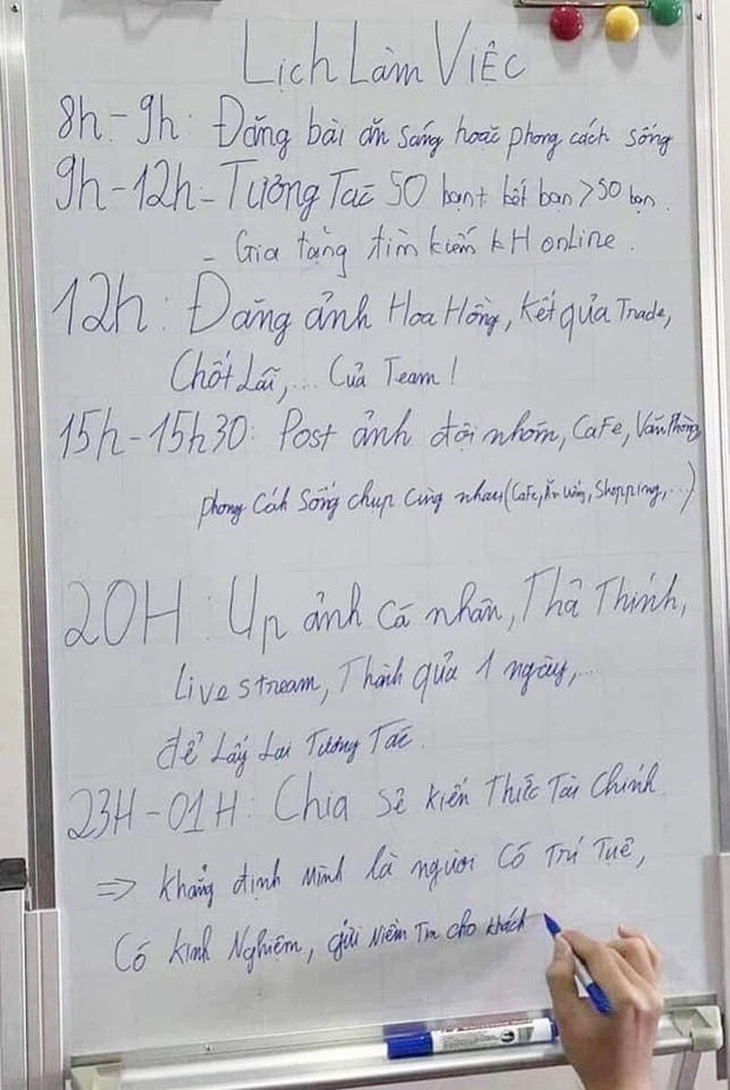 Lịch Làm Việc
8h - 9h: Đăng bài ăn sáng hoặc phong cách sống
9h - 12h - Tương Tác 50 bạn + kết bạn > 50 bạn.
- Gia tăng tìm kiếm KH online.
12h: Đăng ảnh Hoa Hồng, kết quả Trade,
Chốt Lãi, ... Của Team!
15h - 15h30: Post ảnh đội nhóm, Cafe, Văn Phòng
phong cách sống chụp cùng nhau (Cafe, Ăn uống, Shopping, ...)
20H: Up ảnh cá nhân, Thả Thính,
Live stream, Thành quả 1 ngày, ...
để Lấy Lại Tương Tác.
23H - 01H: Chia sẻ kiến Thức Tài Chính.
=> khẳng định mình là người Có Trí Tuệ,
Có kinh Nghiệm, gửi Niềm Tin cho khách